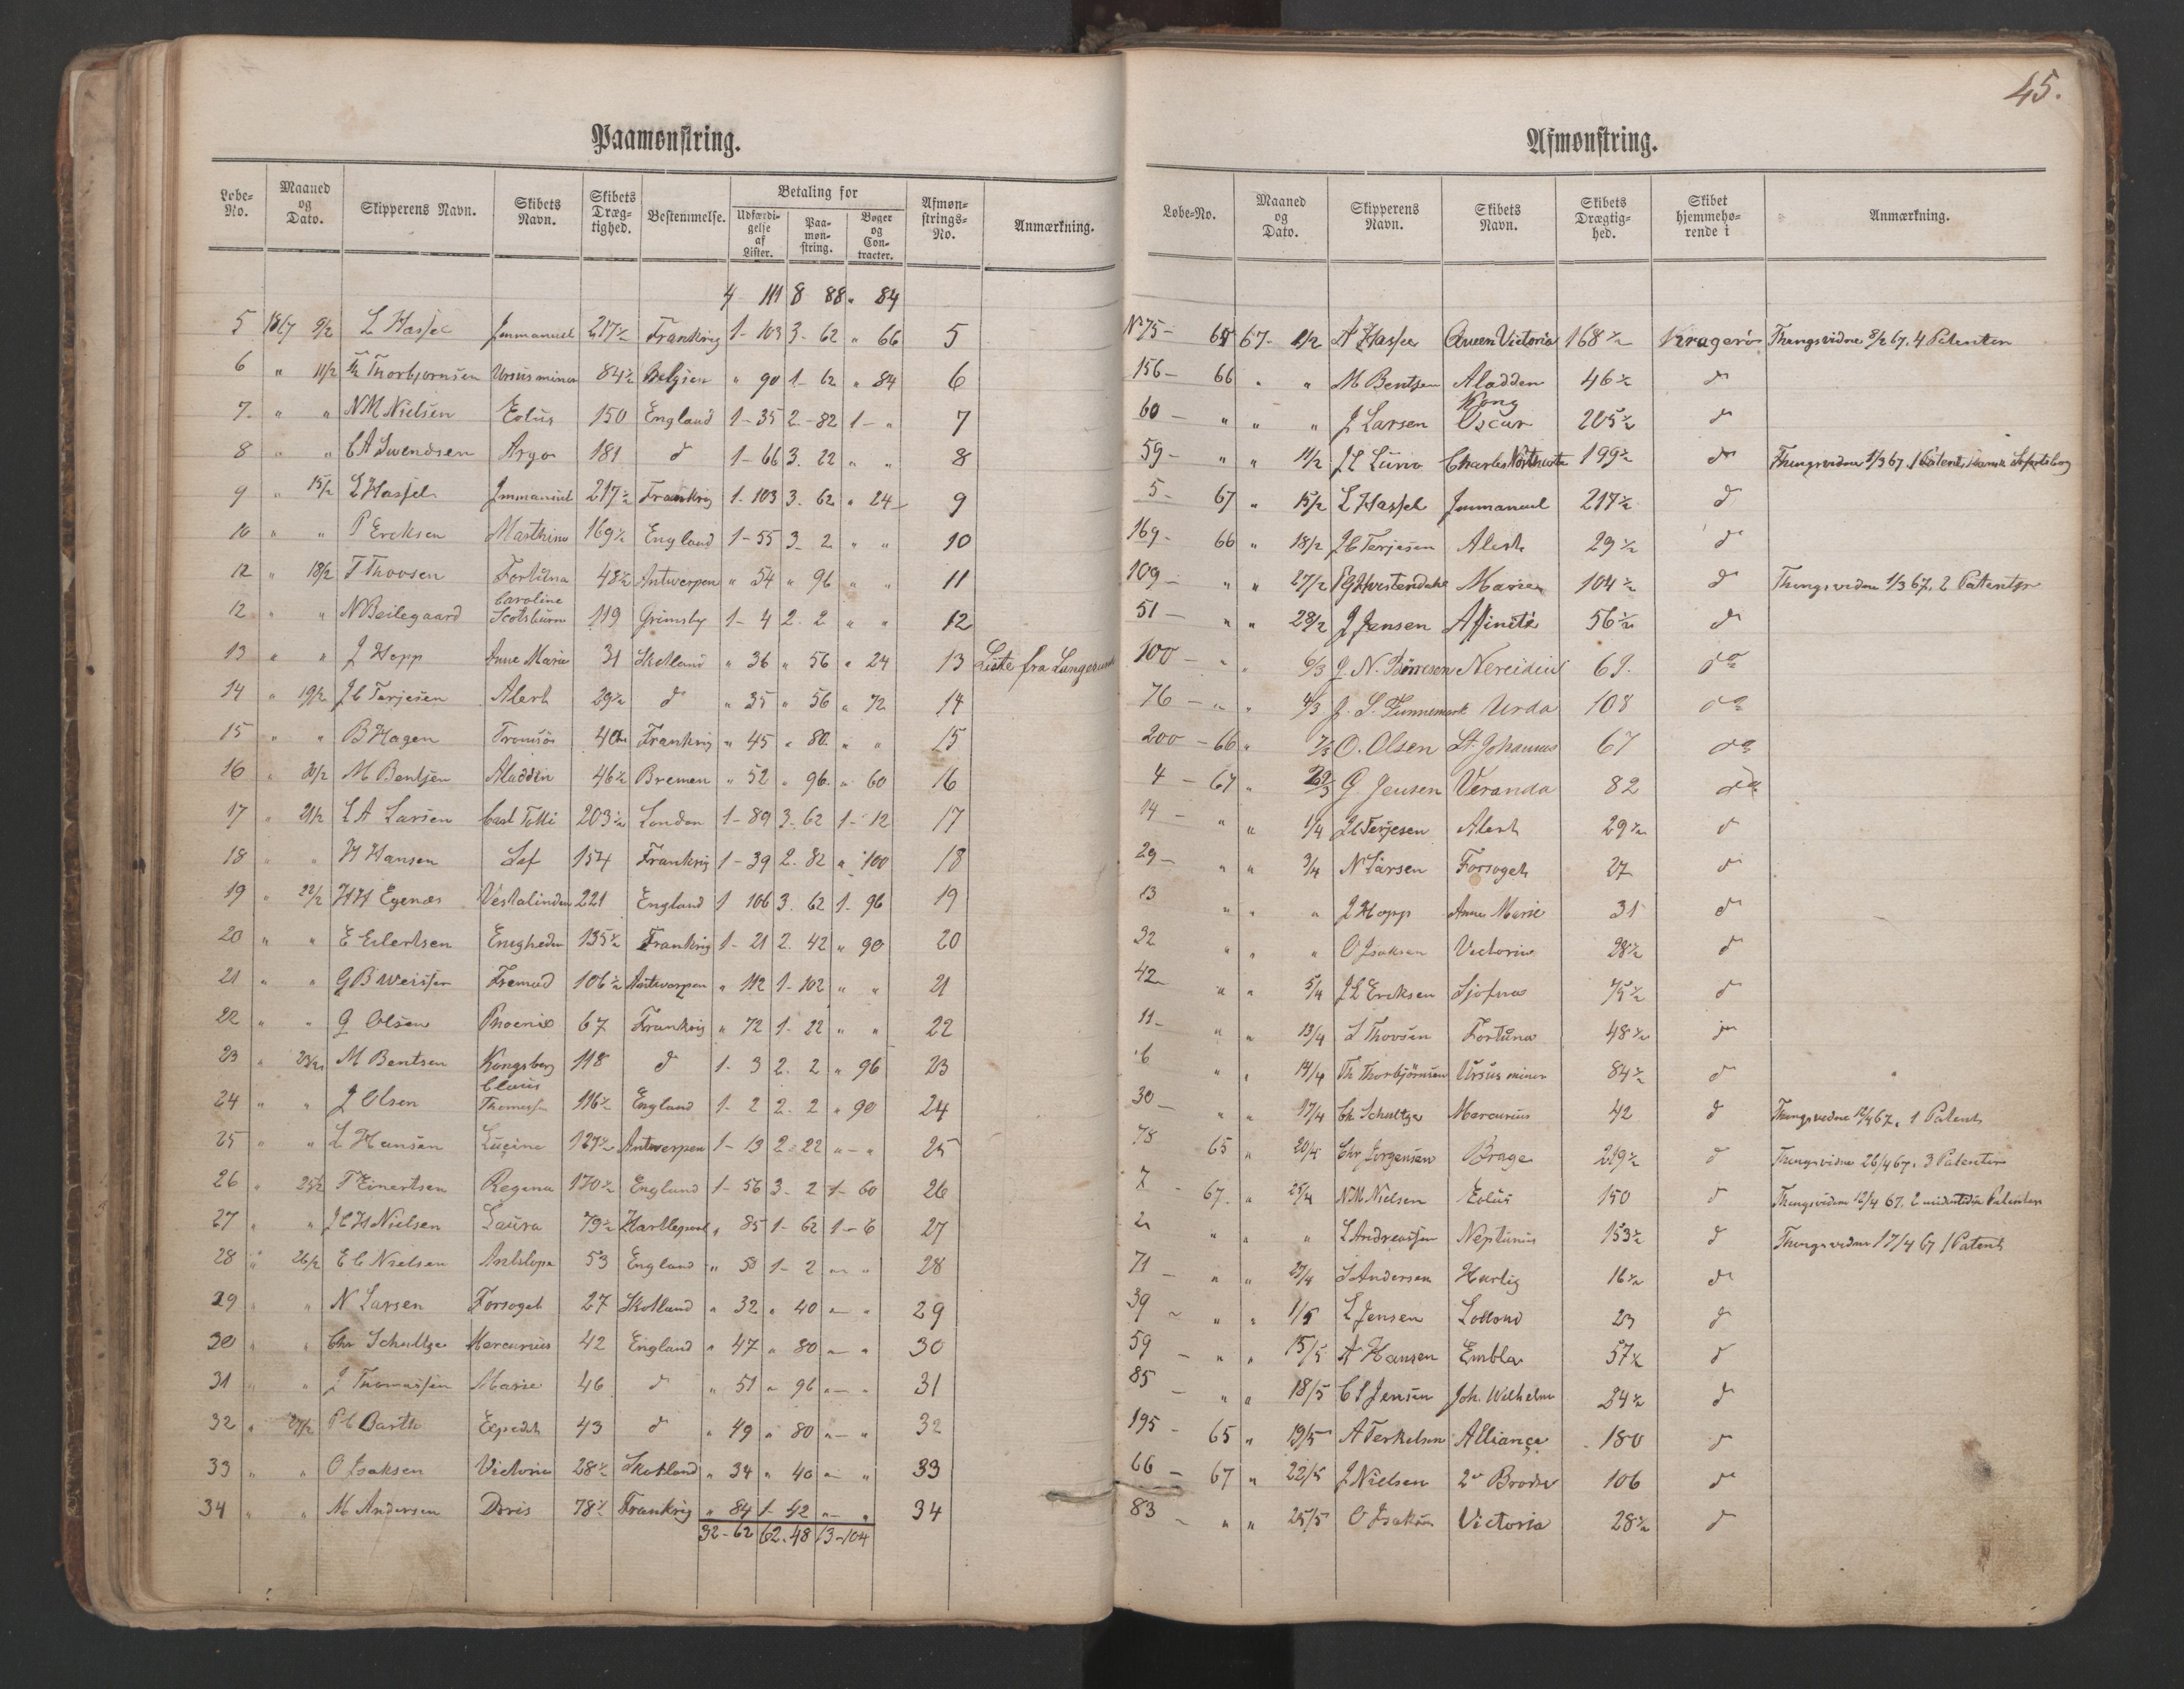 45.
Paamønstring.
Løbe-No. Maaned og Dato. Skipperens Navn. Skibets Navn. Skibets Dræg-tighed. Bestemmelse. Betaling for Udfærdi-gelse af Lister. Paa-møn-string. Bøger og Con-tracter. Afmøn-strings-No. Anmærkning.
4 111 8 88 " 84
5 1867 9/2 L Hassel Immanuel 217½ Frankrig 1-103 3-62 " 66 5
6 " 11/2 Th Thorbjornsen Ursus minor 84½ Belgien " 90 1-62 " 84 6
7. " " N M Nielsen Eolus 150 England 1-35 2-82 1-" 7
8 " " C A Swendsen Argo 181 d 1-66 3.22 " " 8
9 " 15/2 L Hassel Immanuel 217½ Frankrig 1-103 3.62 " 24 9
10 " " P Ericksen Marthine 169½ England 1-55 3-2 " " 10
12 " 18/2 T Thovsen Fortuna 48½ Antwerpen " 54 " 96 " " 11
12 " " N Beilegaard Caroline Scotsburn 119 Grimsby 1-4 2.2 " " 12
13 " " J Hopp Anne Marie 31 Skotland " 36 " 56 " 24 13 Liste fra Langesund
14 " 19/2 J C Terjesen Alert 29½ d " 35 " 56 " 72 14
15 " " B Hagen Tromsøe 40½ Frankrig " 45 " 80 " " 15
16 " 20/2 M Bentsen Aladdin 46½ Bremen " 52 " 96 " 60 16
17 " 21/2 L A Larsen Carl Totti 203½ London 1-89 3-62 1-12 17
18 " " H Hansen Lef 154 Frankrig 1-39 2.82 " 100 18
19 " 22/2 H H Egenæs Vestalinden 221 England 1 106 3.62 1-96 19
20 " " E Eilertsen Enigheden 135½ Frankrig 1-21 2.42 " 90 20
21 " " G B Weissen Fremad 106½ Antwerpen " 112 1-102 " " 21
22 " " G Olsen Phoenix 67 Frankrig " 72 1.22 " " 22
23 " 23/2 M Bentsen Kongsberg 118 d 1-3 2.2 " 96 23
24 " " J Olsen Claus Thomesen 116½ England 1-2 2.2 " 90 24
25 " " L Hansen Lucine 127½ Antwerpen 1-13 2-22 "-" 25
26 " 25/2 T Einertsen Regina 170½ England 1-56 3-2 1-60 26
27 " " J C H Nielsen Laura 79½ Hartlepool " 85 1-62 1-6 27
28 " 26/2 E C Nielsen Antilope 53 England " 58 1-2 "-" 28
29 " " N Larsen Forsøget 27 Skotland " 32 " 40 "-" 29
30 " " Chr Schultze Mercurius 42 England " 47 " 80 "-" 30
31 " " J Thomassen Marie 46 d " 51 " 96 "-" 31
32 " 27/2 P C Barth Expedit 43 d " 49 " 80 "-" 32
33 " " O Isaksen Victoria 28½ Skotland " 34 " 40 "-" 33
34 " " M Andersen Doris 78½ Frankrig " 84 1-42 "-" 34
32-62 62.48 13-104
Afmønstring.
Løbe-No. Maaned og Dato. Skipperens Navn. Skibets Navn. Skibets Drægtig-hed. Skibet hjemmehø-rende i Anmærkning.
No 75- 65 67- 11/2 A Hassel Queen Victoria 168½ Kragerø Thingsvidne 8/2 67. 4 Patenter
156- 66 " " M Bentsen Aladden 46½ d
60- " " " J Larsen Kong Oscar 205½ d
59- " " 11/2 J C Lund Charles 199½ d Thingsvidne 1/3 67. 1 Patent
5- 67 " 15/2 L Hassel Immanuel 217½ d
169- 66 " 18/2 J C Terjesen Alert 29½ d
109- " " 27/2 Marie 104½ d Thingsvidne 1/3 67, 2 Patenter
51- " " 28/2 J Jensen Afinité 56½ d
100- " " 6/3 J. N. Börresen Nereiden 69. do
76- " " 4/3 J. S. Tinnemark Urda 108 do
200-66 " 7/3 O. Olsen St. Johannes 67 do
4-67 " 22/3 G. Jensen Veranda 82 do
14- " " 1/4 J C Terjesen Alert 29½ d
29- " " 3/4 N Larsen Forsøget 27 d
13 " " " J Hopp Anne Marie 31 d
32 " " " O Isaksen Victoria 28½ d
42- " " 5/4 J L Ericksen Sjofna 75½ d
11- " " 13/4 T Thovsen Fortuna 48½ d
6 " " 14/4 Th Thorbjörnsen Ursus minor 84½ d
30- " " 17/4 Ch Schultze Mercurius 42 d Thingsvidne 12/4 67. 1 Patent
78 65 " 20/4 Chr Jorgensen Brage 219½ d Thingsvidne 26/4 67. 3 Patenter
7- 67. " 25/4 N M Nielsen Eolus 150 d Thingsvidne 12/4 67. 2 Patenter
2 " " " L Andreassen Neptunus 153½ d Thingsvidne 17/4 67 1 Patent
71- " " 27/4 S Andersen Hurtig 16½ d
39- " " 1/5 L Jensen Lolland 23 d
59- " " 15/5 A Hansen Embla 57½ d
85- " " 18/5 C S Jensen Joh. Wilhelm 24½ d
195- 65 " 19/5 A Terkelsen Alliance 180 d
66- 67 " 22/5 J Nielsen 2de Brødre 106 d
83- " " 25/5 O Isaksen Victoria 28½ d